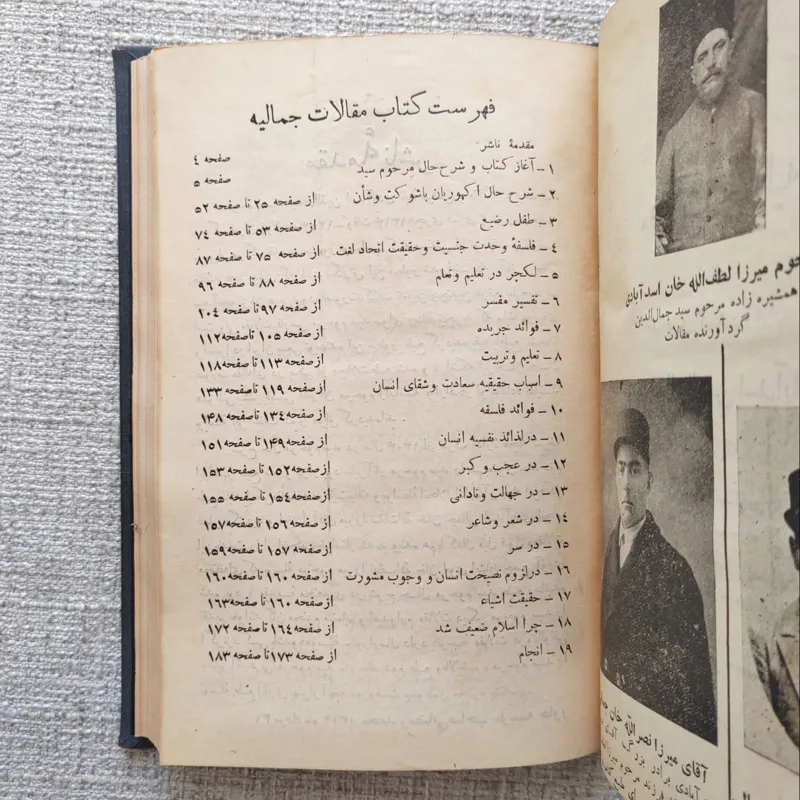 فهرست کتاب مقالات جمالیه
مقدمهٔ ناشر صفحه ۴
۱ - آغاز کتاب و شرح حال مرحوم سید صفحه ۵
۲ - شرح حال اکهوریان باشوکت وشأن از صفحه ۲۵ تا صفحه ۵۲
۳ - طفل رضیع از صفحه ۵۳ تا صفحه ۷۴
۴ - فلسفهٔ وحدت جنسیت وحقیقت اتحاد لغت از صفحه ۷۵ تا صفحه ۸۷
۵ - لکچر در تعلیم وتعلم از صفحه ۸۸ تا صفحه ۹۶
۶ - تفسیر مفسر از صفحه ۹۷ تا صفحه ۱۰۴
۷ - فوائد جریده از صفحه ۱۰۵ تا صفحه ۱۱۲
۸ - تعلیم وتربیت از صفحه ۱۱۳ تا صفحه ۱۱۸
۹ - اسباب حقیقیه سعادت وشقای انسان از صفحه ۱۱۹ تا صفحه ۱۳۳
۱۰ - فوائد فلسفه از صفحه ۱۳۴ تا صفحه ۱۴۸
۱۱ - درلذائذ نفسیه انسان از صفحه ۱۴۹ تا صفحه ۱۵۱
۱۲ - در عجب و کبر از صفحه ۱۵۲ تا صفحه ۱۵۳
۱۳ - در جهالت ونادانی از صفحه ۱۵۴ تا صفحه ۱۵۵
۱۴ - در شعر وشاعر از صفحه ۱۵۶ تا صفحه ۱۵۷
۱۵ - در سر از صفحه ۱۵۷ تا صفحه ۱۵۹
۱۶ - درلزوم نصیحت انسان و وجوب مشورت از صفحه ۱۶۰ تا صفحه ۱۶۰
۱۷ - حقیقت اشیاء از صفحه ۱۶۰ تا صفحه ۱۶۳
۱۸ - چرا اسلام ضعیف شد از صفحه ۱۶۴ تا صفحه ۱۷۲
۱۹ - انجام از صفحه ۱۷۳ تا صفحه ۱۸۳
میرزا لطف‌الله خان اسدآبادی
همشیره زاده مرحوم سید جمال‌الدین
گردآورنده مقالات
آقای میرزا نصرالله خان
برادر بزرگ آقای